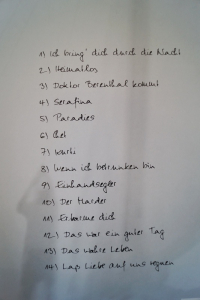 1) Ich bring' dich durch die Nacht
2.) Heimatlos
3) Doktor Berenthal kommt
4) Serafina
5) Paradies
6) Chet
7) Wurti
8) Wenn ich betrunken bin
9) Einhandsegler
10) Der Mörder
11) Erbarme dich
12.) Das war ein guter Tag
13) Das wahre Leben
14) Lass Liebe auf uns regnen